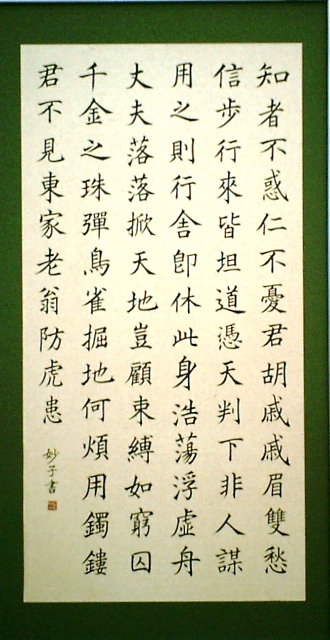 知者不惑仁不憂君胡戚戚眉雙愁
信步行來皆坦道憑天判下非人謀
用之則行舍卽休此身浩蕩浮虛舟
丈夫落落掀天地豈顧束縛如窮囚
千金之珠彈鳥雀掘地何煩用鐲鏤
君不見東家老翁防虎患
妙子書